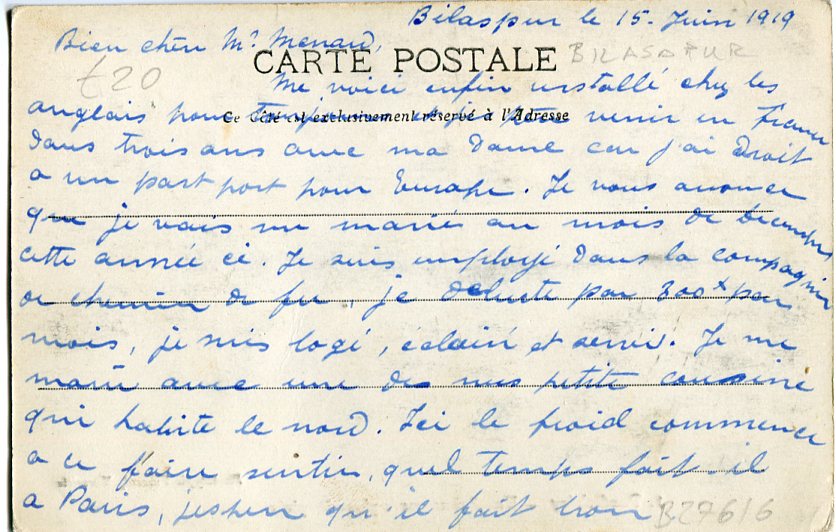 Bilaspur le 15. Juin 1919
Bien cher Mr Menard,
CARTE POSTALE
BILASAPUR
£20
Me voici enfin installé chez les
anglais pour venir en France
Ce côté est exclusivement réservé à l'Adresse
dans trois ans avec ma Dame car j'ai Droit
a un past port pour Europe. Je vous anonce
que je vais me marié au mois de Decembre
cette année ci. Je suis employé dans la compagnie
de chemin de fer, je débute par 300 par
mois, je suis logé, éclairé et servi. Je me
marie avec une de mes petite cousine
qui habite le nord. Ici le froid commence
a ce faire sentir, quel temps fait-il
a Paris, jesper qu'il fait bon
B27616